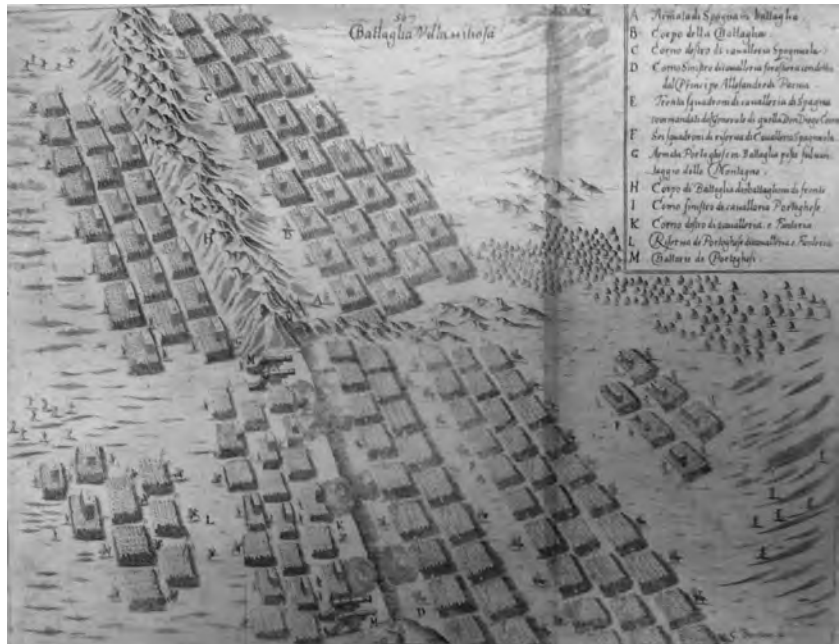 567
Battaglia Villavitiosa
A Armata di Spagna in battaglia
B Corpo della Battaglia
C Corno destro di cavalleria Spagnuola
D Corno Sinistro di cavalleria forastiera condotta
dal Prencipe Allesandro di Parma
E Trenta squadroni di cavalleria di Spagna
commandati dal Generale di quella Don Diego
F Sei squadroni di riserva di Cavalleria Spagnuola
G Armata Portoghese in Battaglia posta sul van
taggio delle Montagne
H Corpo di Battaglia di battaglioni di fronte
I Corno sinistro di cavalleria Portoghese
K Corno destro di cavalleria e Fanteria
L Riserva de Portoghesi di cavalleria e Fanteria
M Batterie de Portoghesi
C
H
B
A
M
L
K
D
M